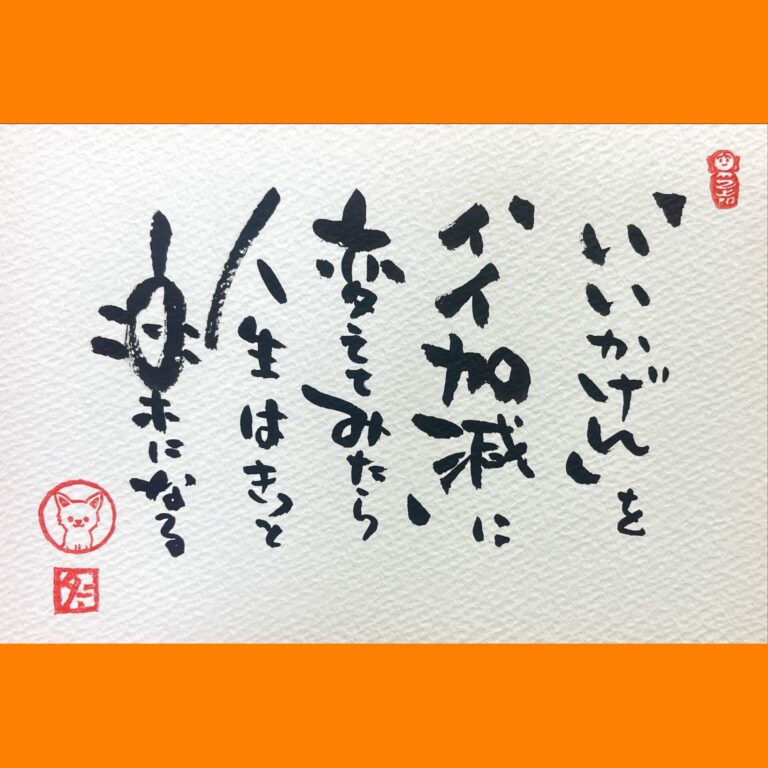 “いいかげん”を
“イイ加減”に
変えてみたら
人生はきっと
楽になる